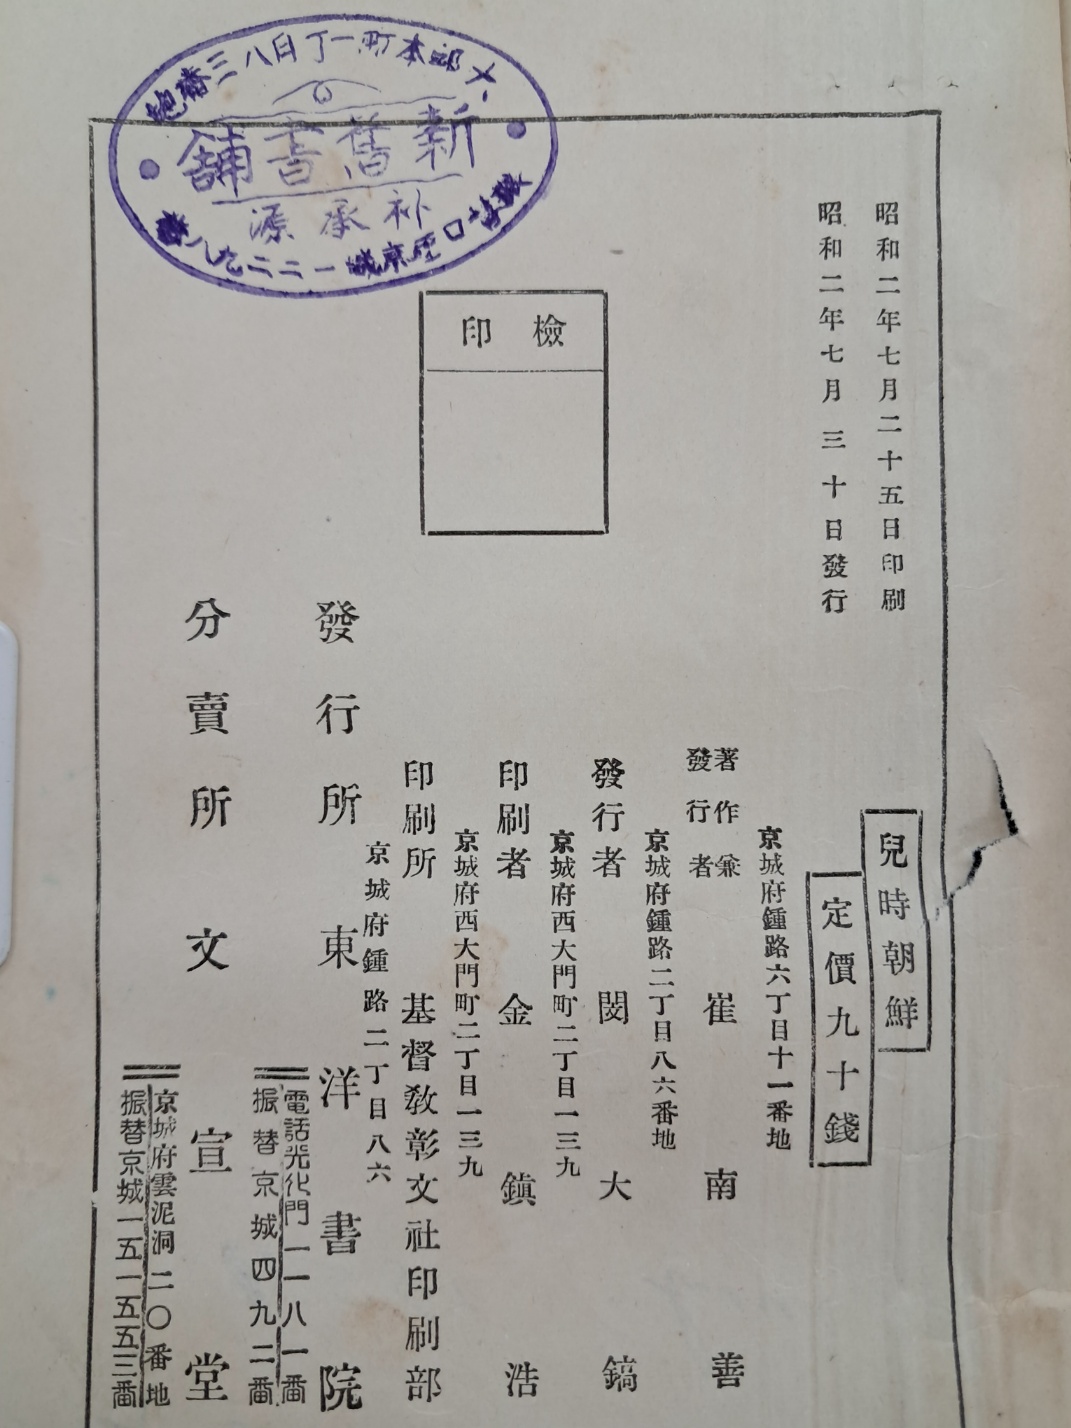 大邱本町一丁目八三番地
新舊書舖
朴承源
振替口座京城一二二九八番
檢印
昭和二年七月二十五日印刷
昭和二年七月三十日發行
兒時朝鮮
定價九十錢
京城府鍾路六丁目十一番地
著作兼
發行者 崔南善
京城府鍾路二丁目八六番地
發行者 閔大鎬
京城府西大門町二丁目一三九
印刷者 金鎭浩
京城府西大門町二丁目一三九
印刷所 基督敎彰文社印刷部
京城府鍾路二丁目八六
發行所 東洋書院
電話光化門一一八一番
振替京城四九二番
分賣所 文宣堂
京城府雲泥洞二〇番地
振替京城一五一五五三番